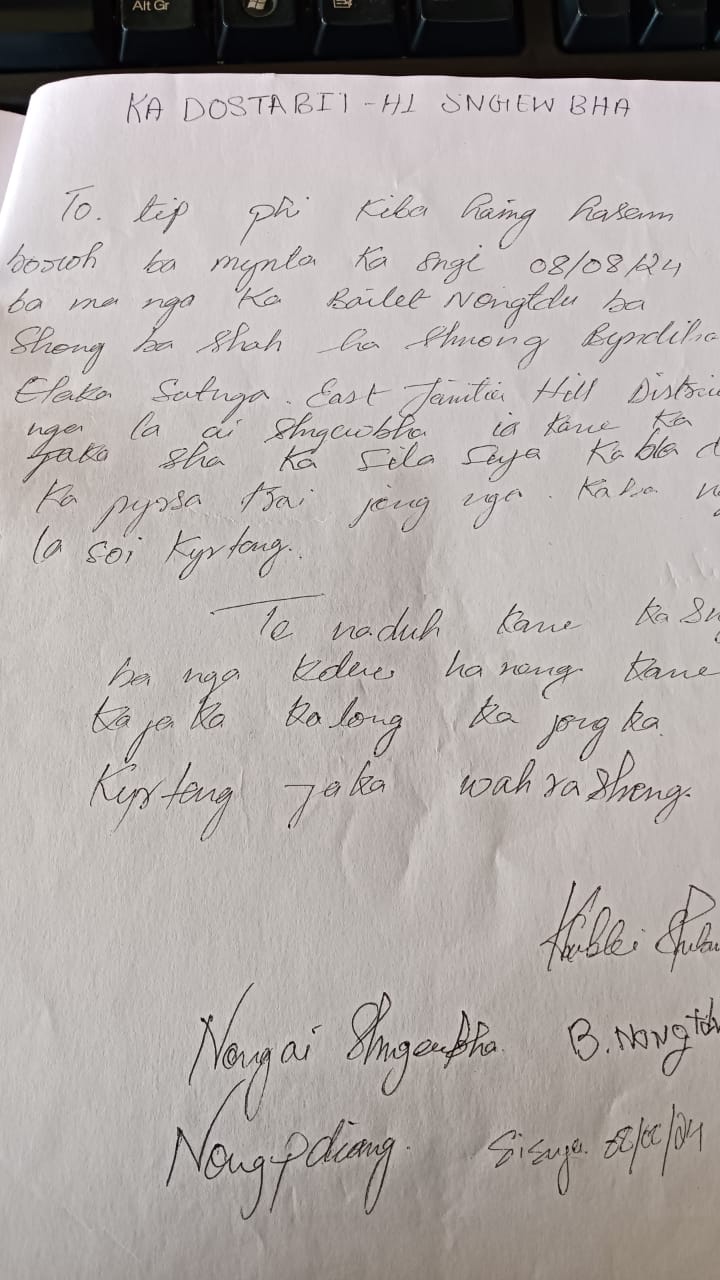 Alt Gr
KA DOSTABIT - HI SNGEW BHA
To. tip phi kiba haing hasem
boroh ba mynta Ka sngi 08/08/24
ba ma nga Ka Bailet Nongtdu ba
Shong ba shah ha shnong Byndiha
Elaka Sutnga. East Jaintia Hill Distric
nga la ai Shgewbha ia kane ka
Jaka sha Ka Sila Suja Ka bla d
Ka pyrsa trai jong nga. Kaba ng
la soi Kyrteng.
Te naduh kane ka Sn
ba nga kdew ha neng kane
ka jaka ka long ka jong ka
Kyrteng jaka wah ra sheng.
Khublei Shibu
Nongai Shngewbha. B. Nongtdu
Nongpdiang. Sisuja. 08/08/24